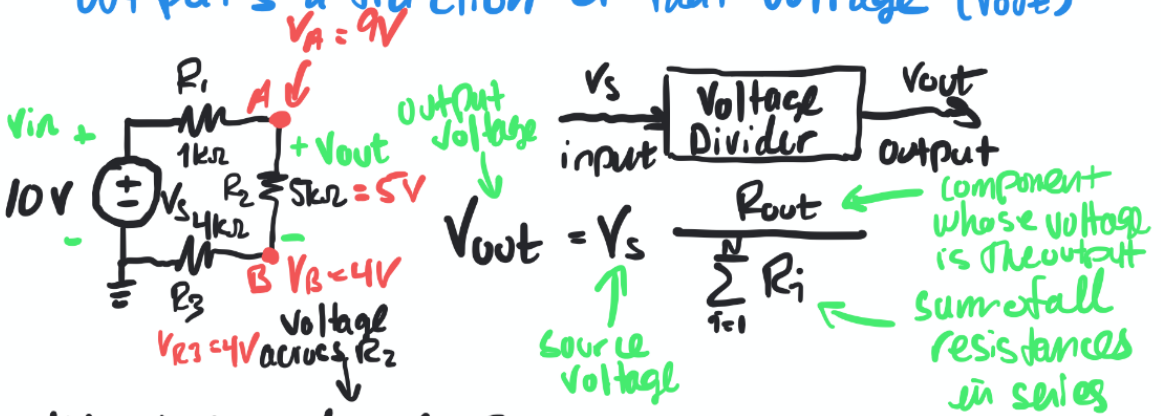 VA = 9V
R1
A
Vin +
1kΩ
+ Vout
10V
+
-
Vs
R2
5kΩ = 5V
4kΩ
-
-
B VB = 4V
R3
VR3 = 4V
voltage
across R2
output
voltage
Vs
input
Voltage
Divider
Vout
output
Vout = Vs Rout
N
∑ Ri
i=1
source
voltage
component
whose voltage
is the output
sum of all
resistances
in series